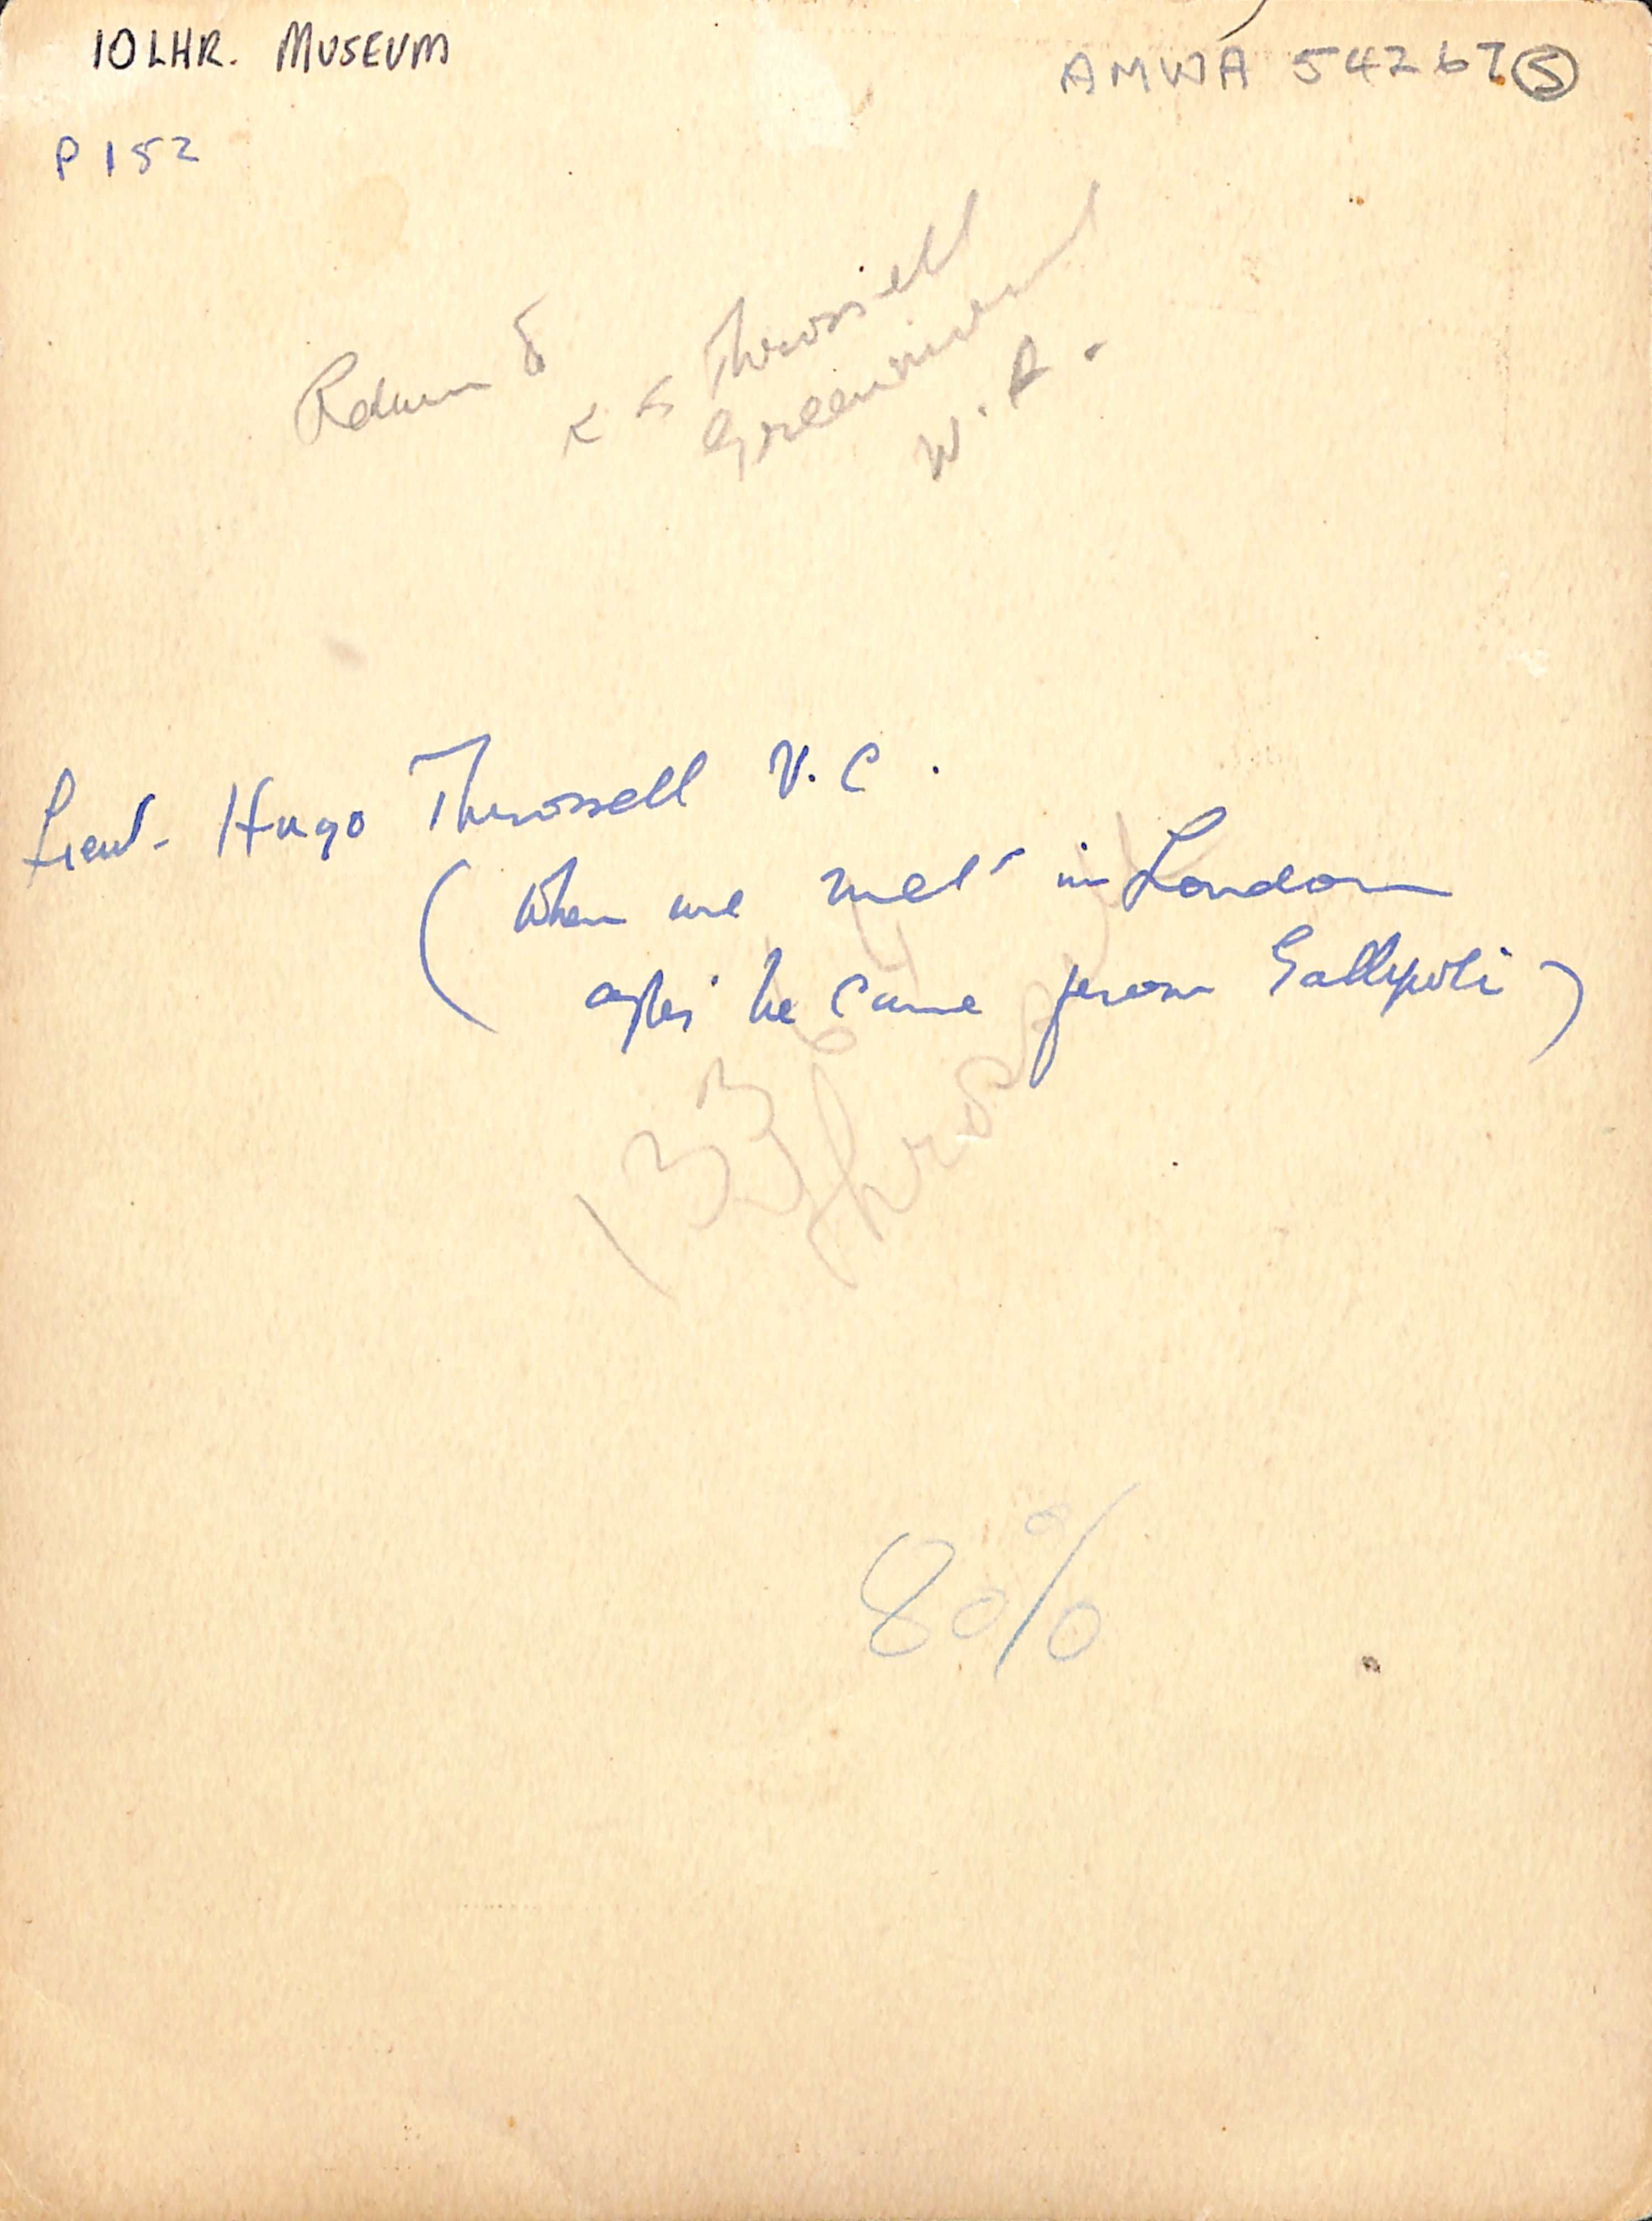 10LHR. MUSEUM
AMWA 54267 (5)
P 152
Return to
K S Throssell
Greenmount
W.A.
Lieut. Hugo Throssell V.C.
(When we met in London
after he came from Gallipoli)
Throssell
80%